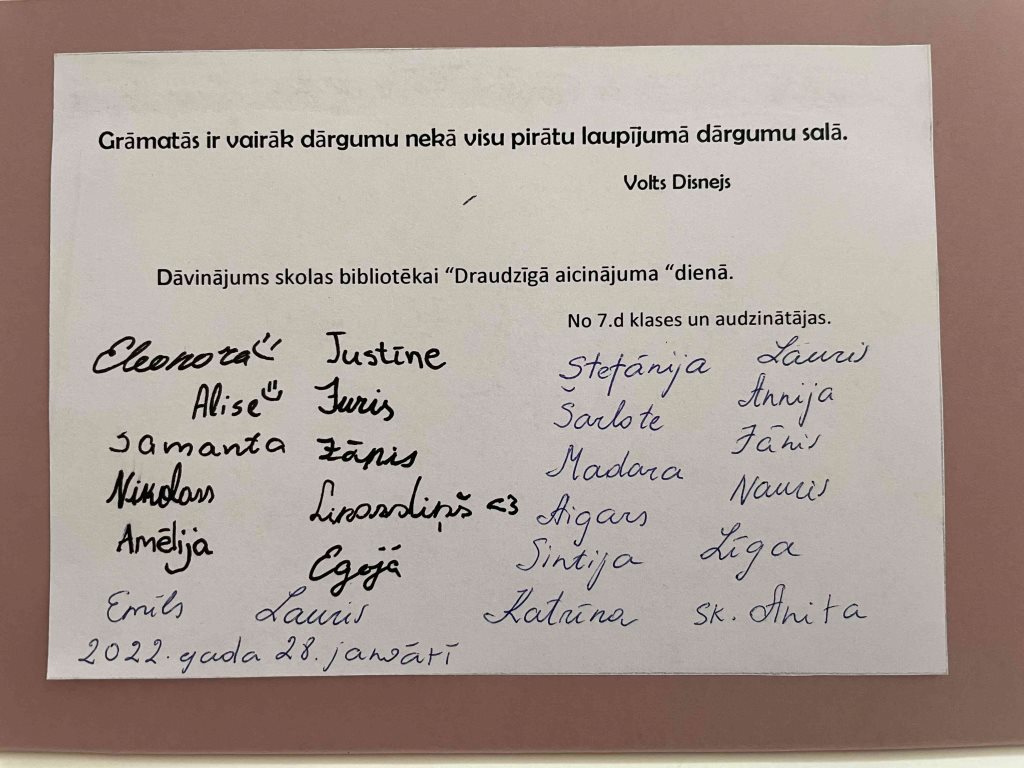 Grāmatās ir vairāk dārgumu nekā visu pirātu laupījumā dārgumu salā.
Volts Disnejs
Dāvinājums skolas bibliotēkai “Draudzīgā aicinājuma “dienā.
No 7.d klases un audzinātājas.
Eleonora Justīne Stefānija Lauris
Alise Juris Šarlote Annija
Samanta Jānis Madara Jānis
Nikolass <3 Aigars Nauris
Amēlija Sintija Līga
Emīls Lauris Katrīna sk. Anita
2022. gada 28. janvārī